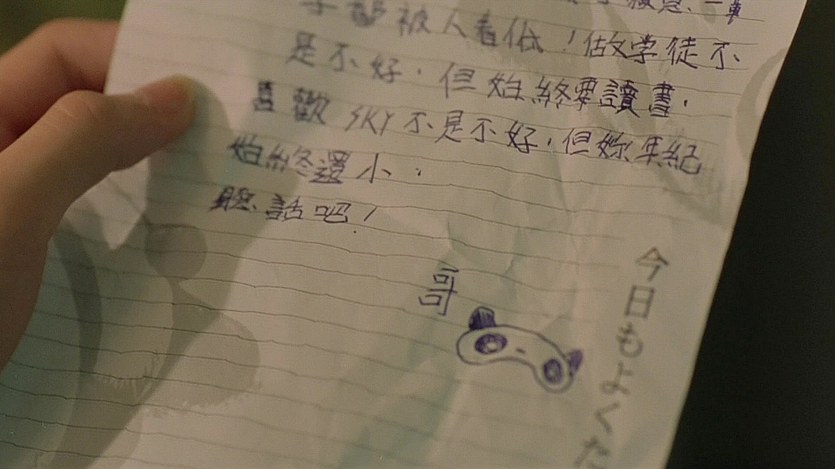 被人看低！做学徒不
是不好．但始終要讀書．
喜歡 SKY 不是不好．但妳年紀
始終還小．
聽話吧！
哥
今日もよくた